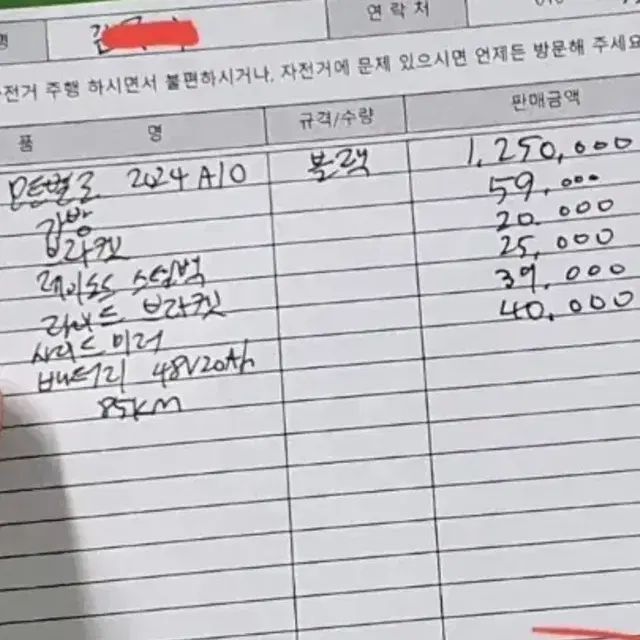 명
연락처
자전거 주행 하시면서 불편하시거나, 자전거에 문제 있으시면 언제든 방문해 주세요
품 명 규격/수량 판매금액
모토벨로 2024 A10 블랙 1,250,000
가방 59,000
브라켓 20,000
레이노드 스템백 25,000
라이노드 브라켓 39,000
사이드 미러 40,000
배터리 48V20Ah
85KM